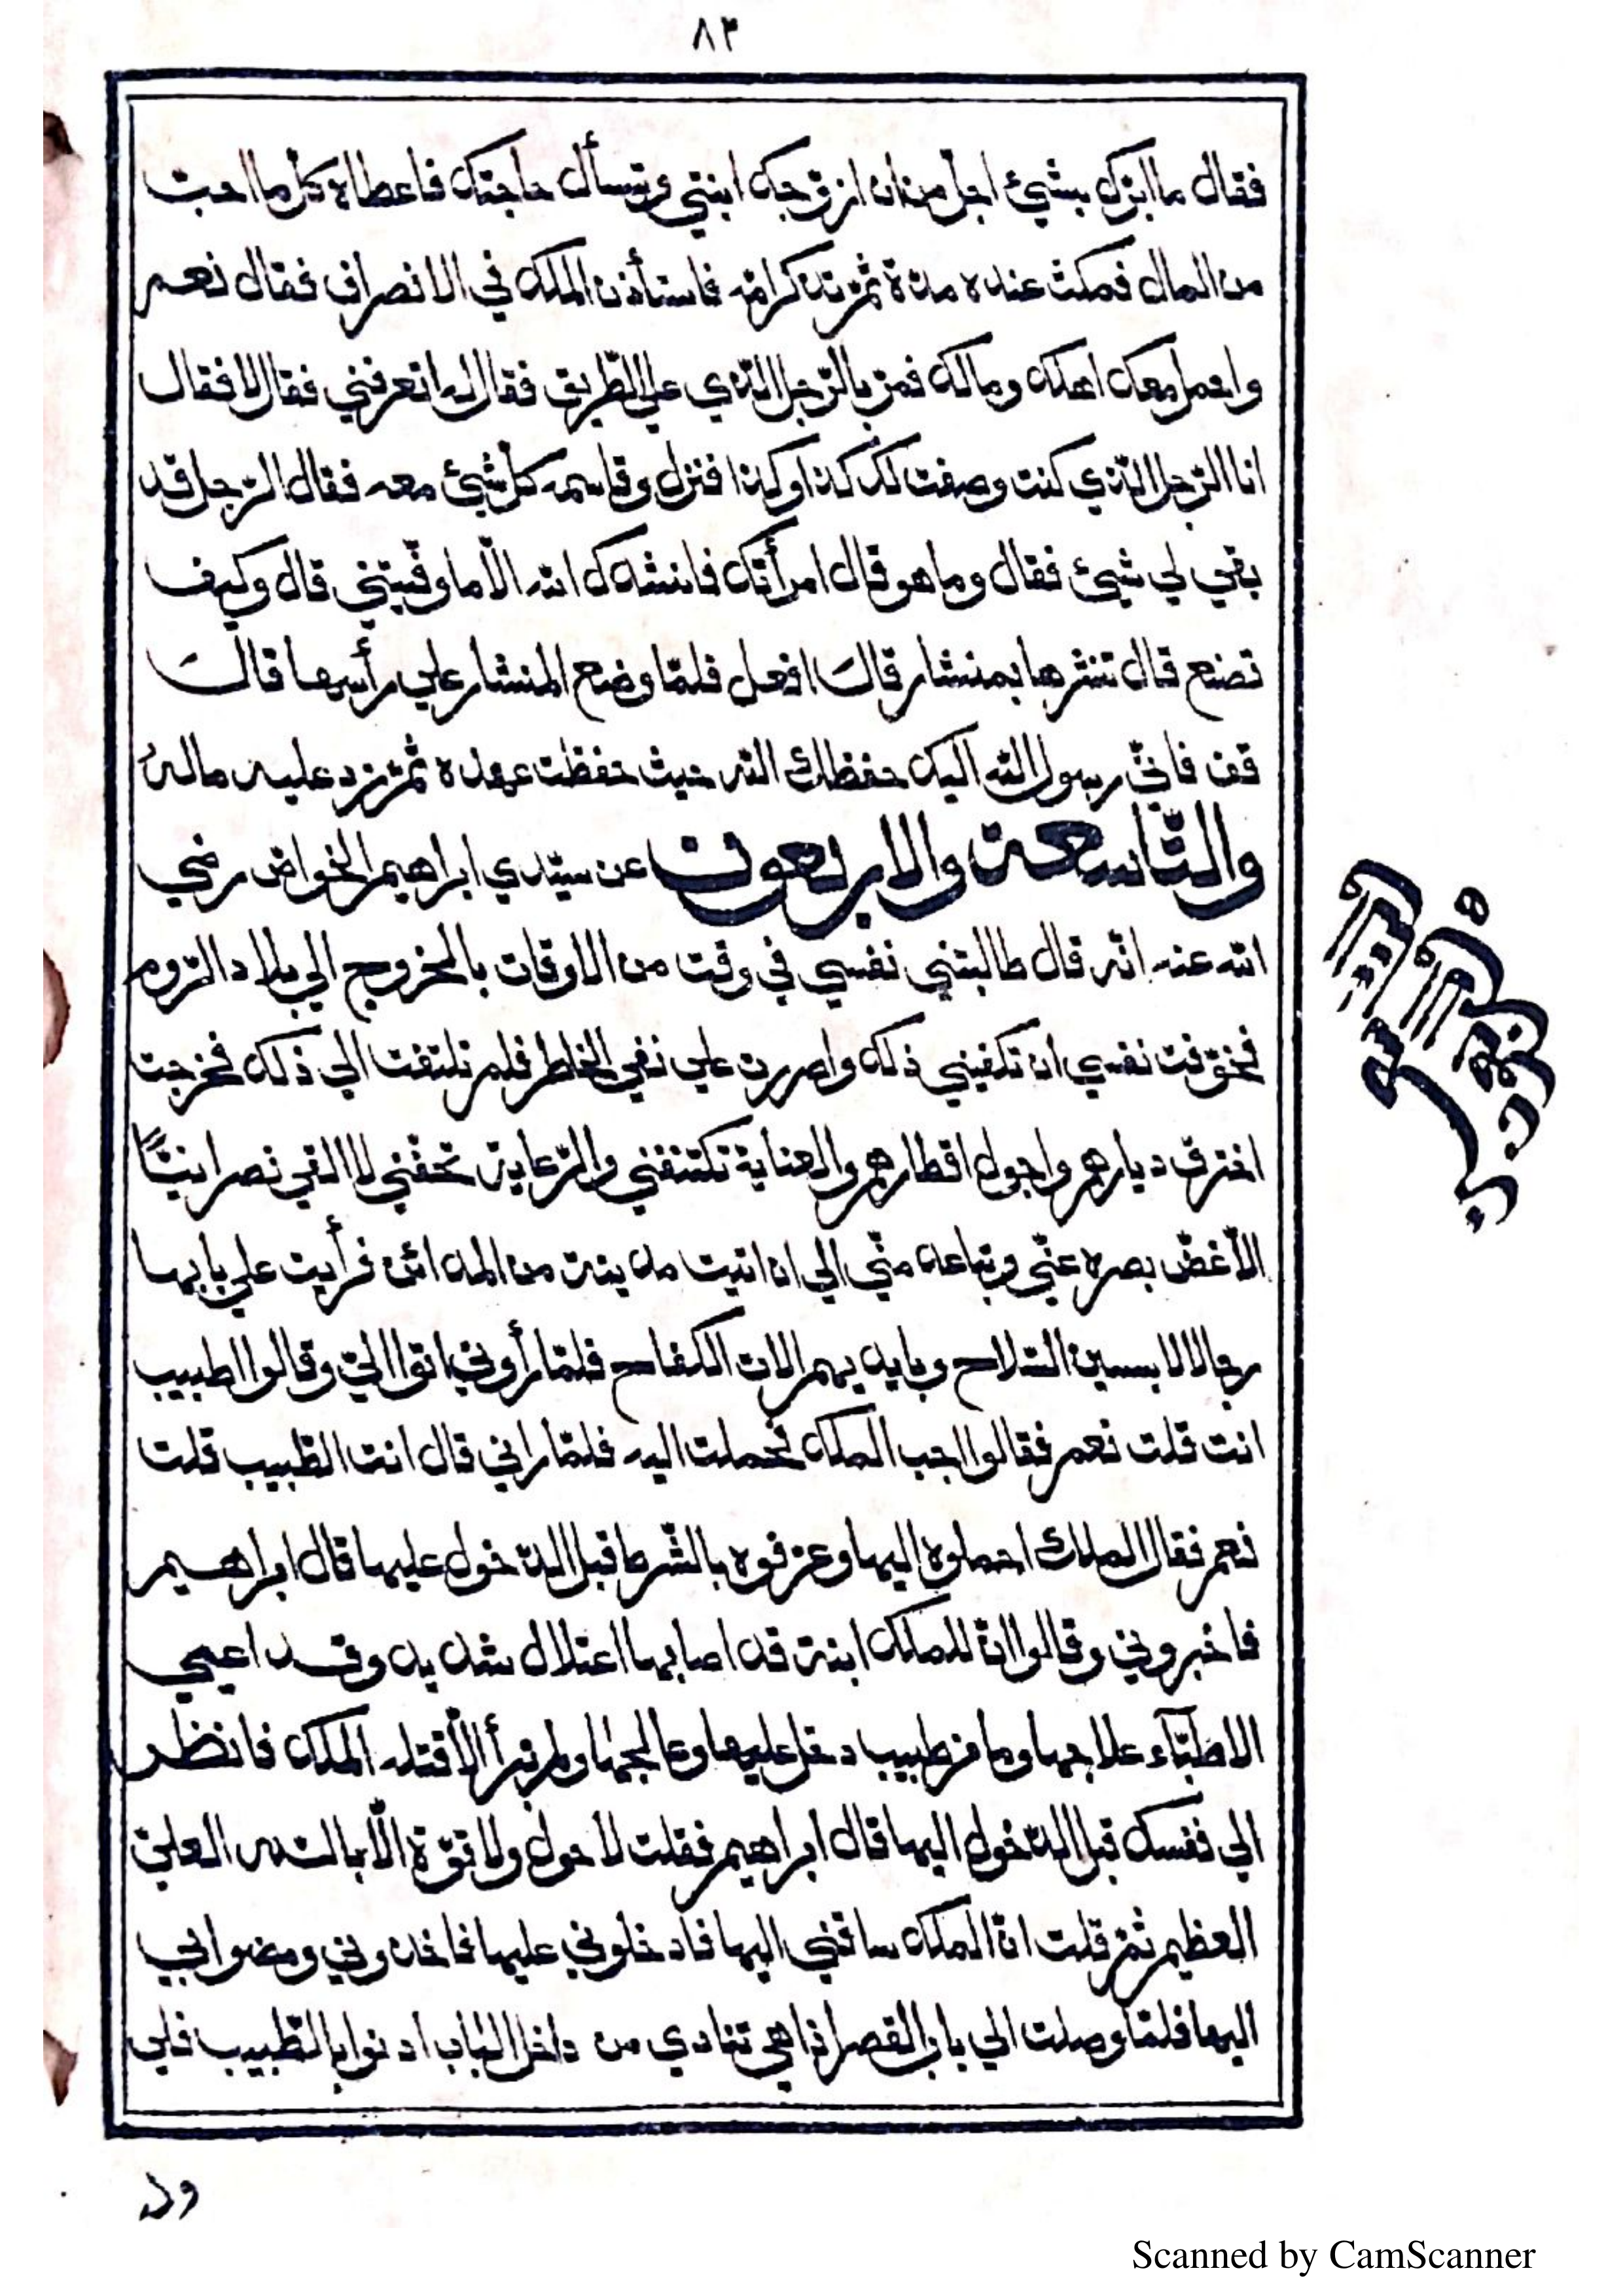 ٨٣
فقال ما ابرك بشيئ اجل من ان ازوجك ابنتي وتسأل حاجتك فاعطاه كل ما احب
من المال فمكث عنده مدة ثم تذكر امّه فاستأذن الملك في الانصراف فقال نعم
واحمل معك اهلك ومالك فمرّ بالرّجل الّذي علي الطّريق فقال له اتعرفني فقال لا فقال
انا الرّجل الّذي كنت وصفت لك كذا وكذا فنزل وقاسمه كلّ شيئ معه فقال الرّجل قد
بقي لي شيئ فقال وما هو قال امرأتك فانشدك الله الّا ما وفّيتني قال وكيف
تصنع قال تنشرها بمنشار قال افعل فلمّا وضع المنشار علي رأسها قال
قف فانّي رسول الله اليك حفظك الله حيث حفظت عهده ثمّ زد عليه ماله
والتّاسعة والاربعون عن سيّدي ابراهيم الخوّاص رضي
الله عنه انّه قال طالبتني نفسي في وقت من الاوقات بالخروج الي بلاد الرّوم
فخوّفت نفسي ان تكفيني ذلك واصررت علي نفي الخاطر فلم تلتفت الي ذلك فخرجت
اخترق ديارهم واجول اقطارهم والعناية تكتنفني والرّعاية تحفّني لا القي نصرانيّا
الّا غضّ بصره عنّي وتباعد منّي الي ان اتيت مدينة من المدائن فرأيت علي بابها
رجالا لابسين السّلاح وبايديهم الات الكفاح فلمّا رأوني اتوا اليّ وقالوا اطبيب
انت قلت نعم فقالوا اجب الملك فحملت اليه فلمّا راني قال انت الطّبيب قلت
نعم فقال الملك احملوه اليها وعرّفوه بالشّرط قبل الدّخول عليها قال ابراهيم
فاخبروني وقالوا انّ للملك ابنة قد اصابها اعتلال شديد وقد اعيي
الاطبّآء علاجها وما من طبيب دخل عليها وعالجها ولم تبرأ الّا قتله الملك فانظر
الي نفسك قبل الدّخول اليها قال ابراهيم فقلت لا حول ولا قوّة الّا بالله العليّ
العظيم ثمّ قلت انّ الملك ساقني اليها فادخلوني عليها فاخذوني ومضوا بي
اليها فلمّا وصلت الي باب القصر اذا هي تنادي من داخل الباب ادنوا بالطّبيب فلي
ول
Scanned by CamScanner